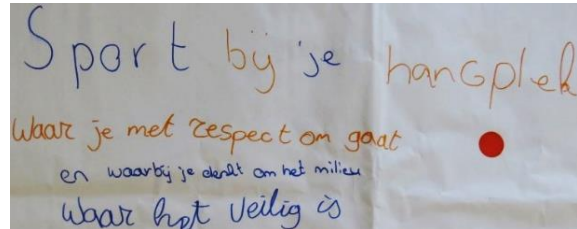 Sport bij je hangplek
Waar je met respect om gaat
en waarbij je denkt om het milieu
Waar het veilig is